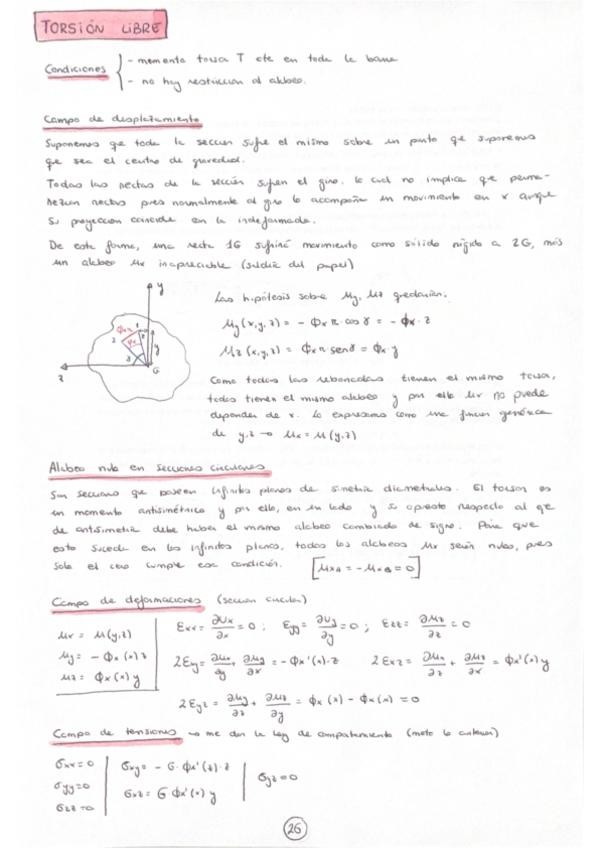 TORSIÓN LIBRE
Condiciones { - momento torsor T cte en toda la barra
- no hay restricción al alabeo.
Campo de desplazamiento
Suponemos que toda la sección sufre el mismo sobre un punto que suponemos
que sea el centro de gravedad.
Todas las rectas de la sección sufren el giro. lo cual no implica que perma-
nezcan rectas pues normalmente al giro lo acompaña un movimiento en x aunque
su proyección coincide en la indeformada.
De esta forma, una recta 1G sufrirá movimiento como sólido rígido a 2G, más
un alabeo ux inapreciable (saldría del papel)
Las hipótesis sobre uy, uz quedarían:
uy(x,y,z) = - ϕx r cos γ = - ϕx · z
uz(x,y,z) = ϕx r sen γ = ϕx · y
y
z
G
1
2
Como todas las rebanadas tienen el mismo torsor,
todas tienen el mismo alabeo y por ello ux no puede
depender de x. Lo expresamos como una función genérica
de y,z → ux = u(y,z)
Alabeo nulo en secciones circulares
Son secciones que poseen infinitos planos de simetría diametrales. El torsor es
un momento antisimétrico y por ello, en un lado y su opuesto respecto al eje
de antisimetría debe haber el mismo alabeo cambiado de signo. Para que
esto suceda en los infinitos planos, todos los alabeos ux serán nulos, pues
solo el cero cumple esa condición. [uxA = - uxB = 0]
Campo de deformaciones (sección circular)
ux = u(y,z)
uy = - ϕx(x) z
uz = ϕx(x) y
Exx = ∂ux/∂x = 0 ; Eyy = ∂uy/∂y = 0 ; Ezz = ∂uz/∂z = 0
2Exy = ∂ux/∂y + ∂uy/∂x = - ϕx'(x) · z 2Exz = ∂ux/∂z + ∂uz/∂x = ϕx'(x) y
2Eyz = ∂uy/∂z + ∂uz/∂y = ϕx(x) - ϕx(x) = 0
Campo de tensiones → me dan la ley de comportamiento (meto lo anterior)
σxx = 0
σyy = 0
σzz = 0
σxy = - G · ϕx'(x) · z
σxz = G ϕx'(x) y
σyz = 0
26